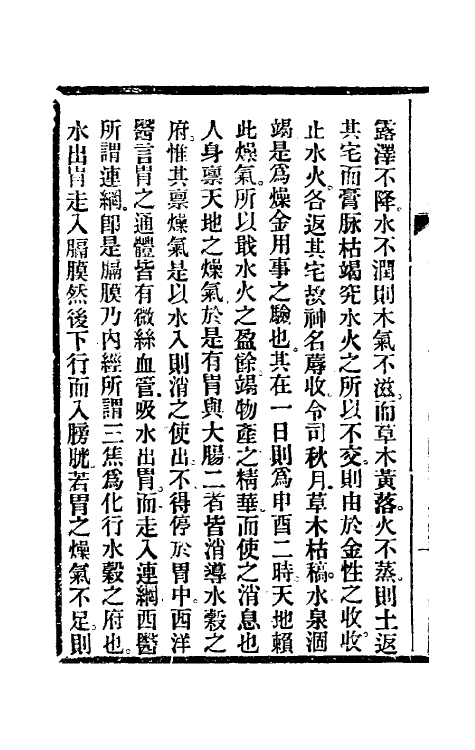 露澤不降。水不潤則木氣不滋。而草木黃落。火不蒸。則土返
其宅而膏脉枯竭究水火之所以不交。則由於金性之收。收
止水火。各返其宅。故神名蓐收。令司秋月。草木枯槁。水泉涸
竭。是爲燥金用事之驗也。其在一日則爲申酉二時。天地賴
此燥氣。所以戢水火之盈餘。竭物產之精華。而使之消息也
人身禀天地之燥氣於是有胃與大腸二者皆消導水穀之
府。惟其禀燥氣。是以水入則消之使出。不得停於胃中。西洋
醫言胃之通體皆有微絲血管。吸水出胃。而走入連網。西醫
所謂連網。卽是膈膜。乃內經所謂三焦爲化行水穀之府也。
水出胃。走入膈膜然後下行而入膀胱。若胃之燥氣不足。則